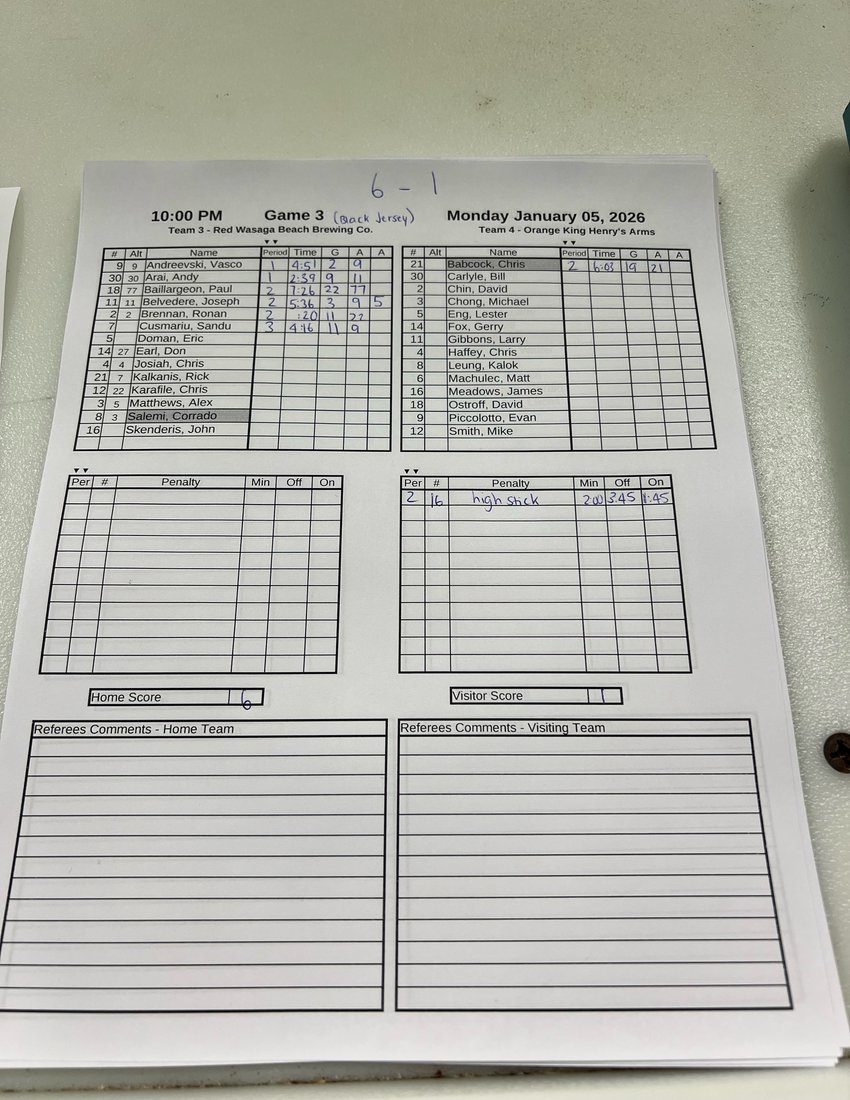 6 - 1
10:00 PM Game 3 (Black Jersey) Monday January 05, 2026
Team 3 - Red Wasaga Beach Brewing Co. Team 4 - Orange King Henry's Arms
# Alt Name Period Time G A A # Alt Name Period Time G A A
9 9 Andreevski, Vasco 1 4:51 2 9 21 Babcock, Chris 2 6:03 19 21
30 30 Arai, Andy 1 2:39 9 11 30 Carlyle, Bill
18 77 Baillargeon, Paul 2 7:26 22 77 2 Chin, David
11 11 Belvedere, Joseph 2 5:36 3 9 5 3 Chong, Michael
2 2 Brennan, Ronan 2 :20 11 22 5 Eng, Lester
7 Cusmariu, Sandu 3 4:16 11 9 14 Fox, Gerry
5 Doman, Eric 11 Gibbons, Larry
14 27 Earl, Don 4 Haffey, Chris
4 4 Josiah, Chris 8 Leung, Kalok
21 7 Kalkanis, Rick 6 Machulec, Matt
12 22 Karafile, Chris 16 Meadows, James
3 5 Matthews, Alex 18 Ostroff, David
8 3 Salemi, Corrado 9 Piccolotto, Evan
16 Skenderis, John 12 Smith, Mike
Per # Penalty Min Off On Per # Penalty Min Off On
2 16 high stick 2:00 3:45 1:45
Home Score 6 Visitor Score 1
Referees Comments - Home Team Referees Comments - Visiting Team